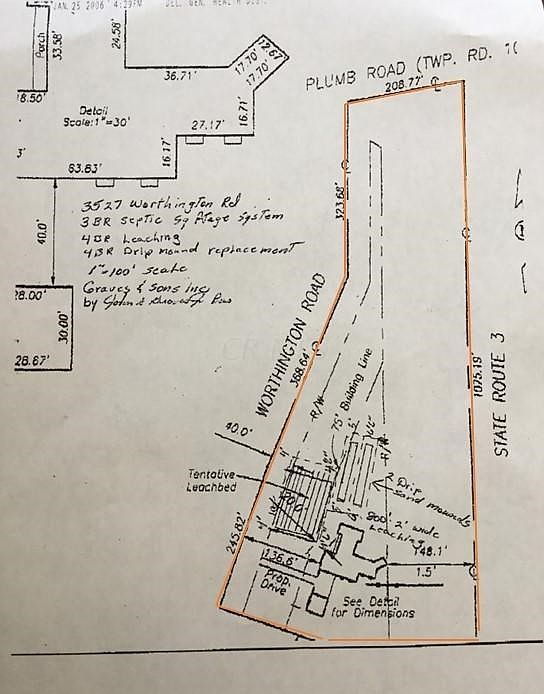 JAN 25 2006 4:29PM DEL. GEN. HEALTH DIST.
Porch
33.58'
24.58'
12.67
17.70'
17.70'
36.71'
18.50'
Detail
Scale: 1"=30'
16.71'
27.17'
16.17'
3'
63.83'
40.0'
28.00'
30.00'
28.67'
3527 Worthington Rd
3 BR Septic
System
4 BR Leaching
4 BR Drip mound replacement
1"=100' scale
Graves & Sons Inc
by John
PLUMB ROAD (TWP. RD.
208.77'
323.68'
WORTHINGTON ROAD
368.64'
R/W
75' Building Line
R/W
1075.19'
STATE ROUTE 3
40.0'
Tentative
Leachbed
2 Drip
Sand mounds
800' 2' wide
Leaching
245.82'
136.6'
148.1'
1.5'
Prop.
Drive
See Detail
for Dimensions